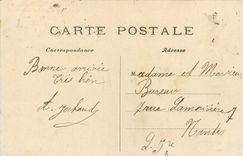 CARTE POSTALE
Correspondance
Adresse
Bonne arrivée
très bien
Madame et Monsieur
Bureau
rue Lamoricière
Nantes
L. Ire